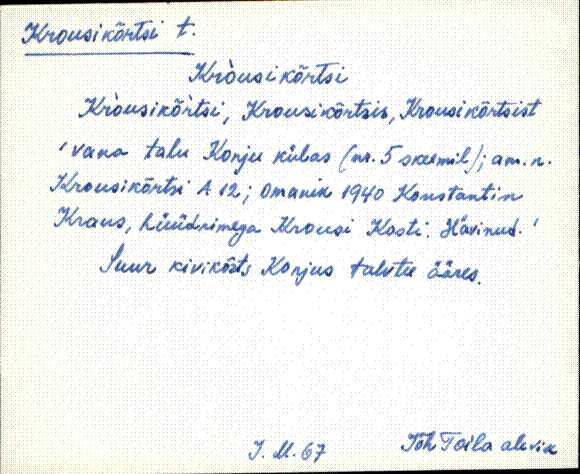 Krousikõrtsi t.
Kròusikõrtsi
Kròusikõ̀rtsi, Krousikõrtsis, Krousikõrtsist
'vana talu Konju külas (nr. 5 skeemil); am. n.
Krousikõrtsi A 12; omanik 1940 Konstantin
Kraus, hüüdnimega Krousi Kosti. Hävinud.'
Suur kivikõrts Konjus talvitee ääres.
J. M. 67
Jõh Toila alevik